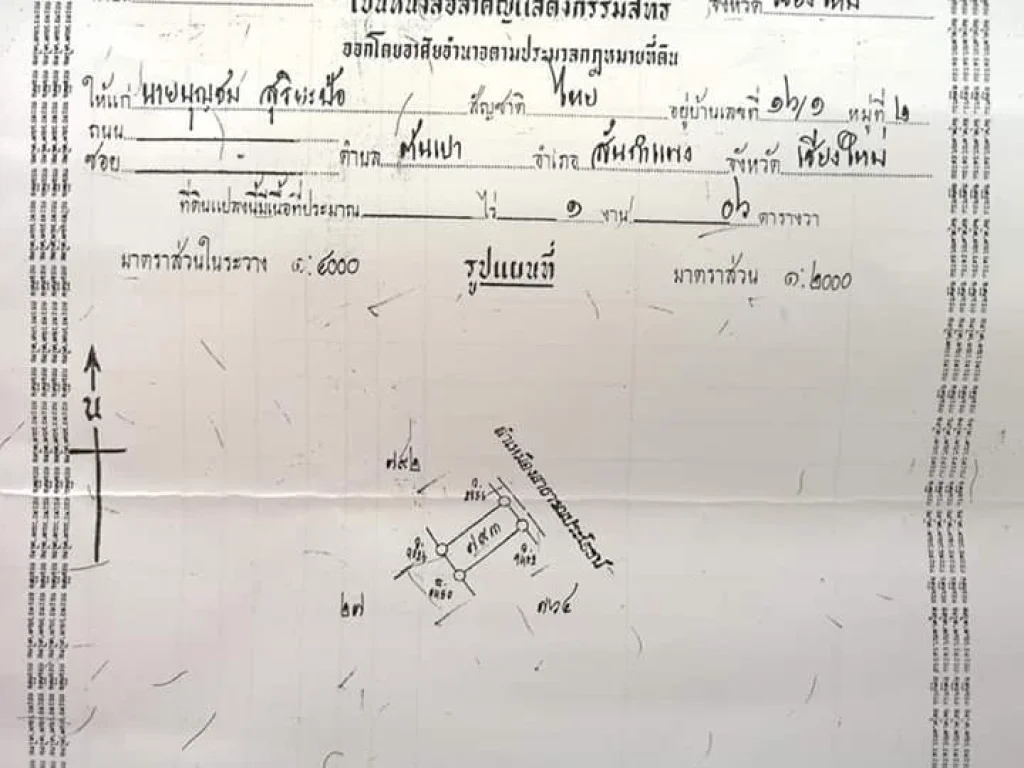 เป็นหนังสือสำคัญแสดงกรรมสิทธิ์ จังหวัด เชียงใหม่
ออกโดยอาศัยอำนาจตามประมวลกฎหมายที่ดิน
ให้แก่ นายบุญชม สุริยะป้อ สัญชาติ ไทย อยู่บ้านเลขที่ ๑๖/๑ หมู่ที่ ๒
ถนน
ซอย ตำบล ต้นเปา อำเภอ สันกำแพง จังหวัด เชียงใหม่
ที่ดินแปลงนี้มีเนื้อที่ประมาณ ไร่ ๑ งาน ๐๖ ตารางวา
มาตราส่วนในระวาง ๑:๔๐๐๐ รูปแผนที่ มาตราส่วน ๑:๒๐๐๐
น
๗๙๒
ลำเหมืองสาธารณประโยชน์
๗๙๓
๒๗
๗๖๔